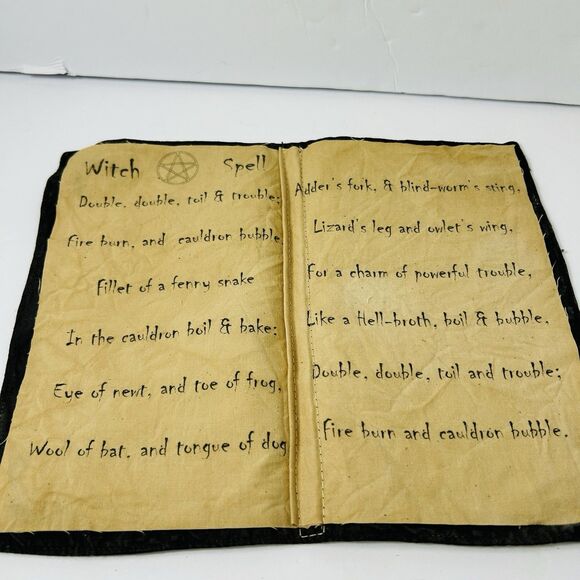 Witch Spell
Double, double, toil & trouble;
Fire burn, and cauldron bubble
Fillet of a fenny snake
In the cauldron boil & bake;
Eye of newt, and toe of frog,
Wool of bat, and tongue of dog
Adder's fork, & blind-worm's sting,
Lizard's leg and owlet's wing,
For a charm of powerful trouble,
Like a Hell-broth, boil & bubble,
Double, double, toil and trouble;
Fire burn and cauldron bubble.